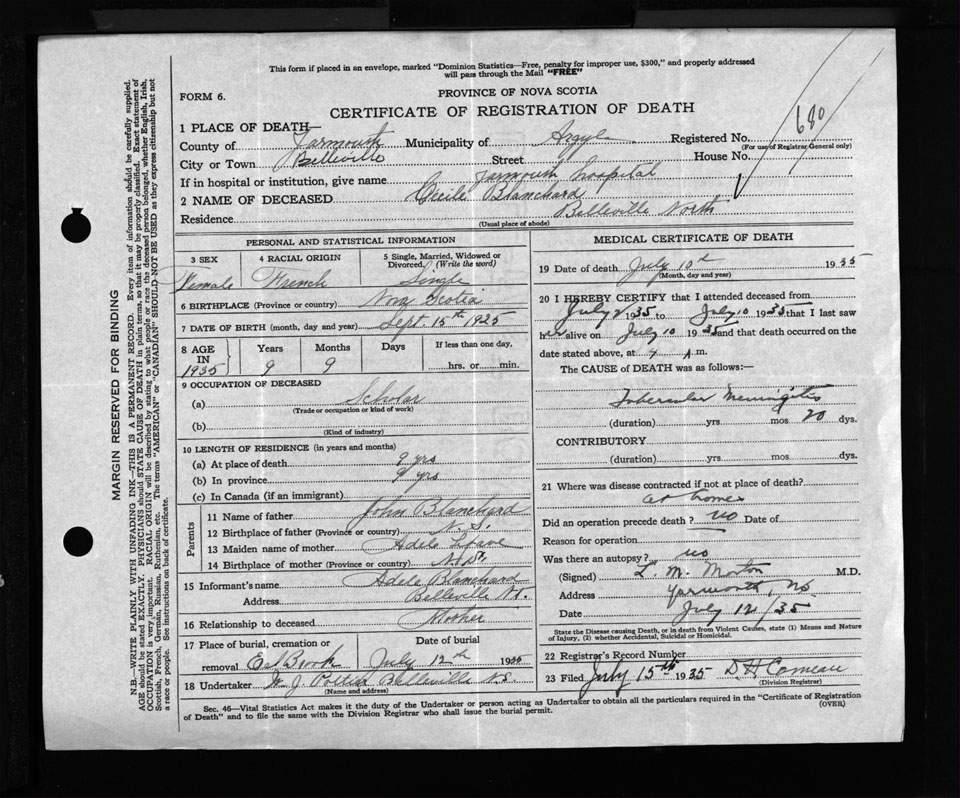 This form if placed in an envelope, marked "Dominion Statistics—Free, penalty for improper use, $300," and properly addressed
will pass through the Mail "FREE"
PROVINCE OF NOVA SCOTIA
FORM 6.
CERTIFICATE OF REGISTRATION OF DEATH
680
1 PLACE OF DEATH—
County of Yarmouth Municipality of Argyle Registered No.
(For use of Registrar General only)
City or Town Belleville Street House No.
If in hospital or institution, give name Yarmouth Hospital
2 NAME OF DECEASED Cecile Blanchard
Residence Belleville North
(Usual place of abode)
PERSONAL AND STATISTICAL INFORMATION
3 SEX 4 RACIAL ORIGIN 5 Single, Married, Widowed or
Divorced. (Write the word)
Female French Single
6 BIRTHPLACE (Province or country) Nova Scotia
7 DATE OF BIRTH (month, day and year) Sept. 15th 1925
8 AGE IN 1935 Years 9 Months 9 Days If less than one day,
hrs. or min.
9 OCCUPATION OF DECEASED
(a) Scholar
(Trade or occupation or kind of work)
(b)
(Kind of industry)
10 LENGTH OF RESIDENCE (in years and months)
(a) At place of death 9 yrs
(b) In province 9 yrs
(c) In Canada (if an immigrant)
Parents
11 Name of father John Blanchard
12 Birthplace of father (Province or country) N.S.
13 Maiden name of mother Adele
14 Birthplace of mother (Province or country) N.S.
15 Informant's name Adele Blanchard
Address Belleville N.
16 Relationship to deceased Mother
17 Place of burial, cremation or Date of burial
removal Eel Brook July 12th 1935
18 Undertaker W. J. Belleville N.S.
(Name and address)
MEDICAL CERTIFICATE OF DEATH
19 Date of death July 10th 1935
(Month, day and year)
20 I HEREBY CERTIFY that I attended deceased from
July 2 1935 to July 10 1935 that I last saw
her alive on July 10 1935 and that death occurred on the
date stated above, at 4 m.
The CAUSE of DEATH was as follows:—
Tubercular Meningitis
(duration) yrs mos 20 dys.
CONTRIBUTORY
(duration) yrs mos dys.
21 Where was disease contracted if not at place of death?
at home
Did an operation precede death? no Date of
Reason for operation
Was there an autopsy? no
(Signed) L. M. Morton M.D.
Address Yarmouth, NS
Date July 12/35
State the Disease causing Death, or in death from Violent Causes, state (1) Means and Nature
of Injury, (2) whether Accidental, Suicidal or Homicidal.
22 Registrar's Record Number
23 Filed July 15th 1935 D H Comeau
(Division Registrar)
Sec. 46—Vital Statistics Act makes it the duty of the Undertaker or person acting as Undertaker to obtain all the particulars required in the "Certificate of Registration
of Death" and to file the same with the Division Registrar who shall issue the burial permit. (OVER)
MARGIN RESERVED FOR BINDING
N.B.—WRITE PLAINLY WITH UNFADING INK—THIS IS A PERMANENT RECORD. Every item of information should be carefully supplied.
AGE should be stated EXACTLY. PHYSICIANS should STATE CAUSE OF DEATH in plain terms, so that it may be properly classified. Exact statement of
OCCUPATION is very important. RACIAL ORIGIN will be described by stating to what people or race the deceased person belonged, whether English, Irish,
Scottish, French, German, Russian, Ruthenian, etc. The terms "AMERICAN" or "CANADIAN" SHOULD NOT BE USED as they express citizenship but not
a race or people. See instructions on back of certificate.